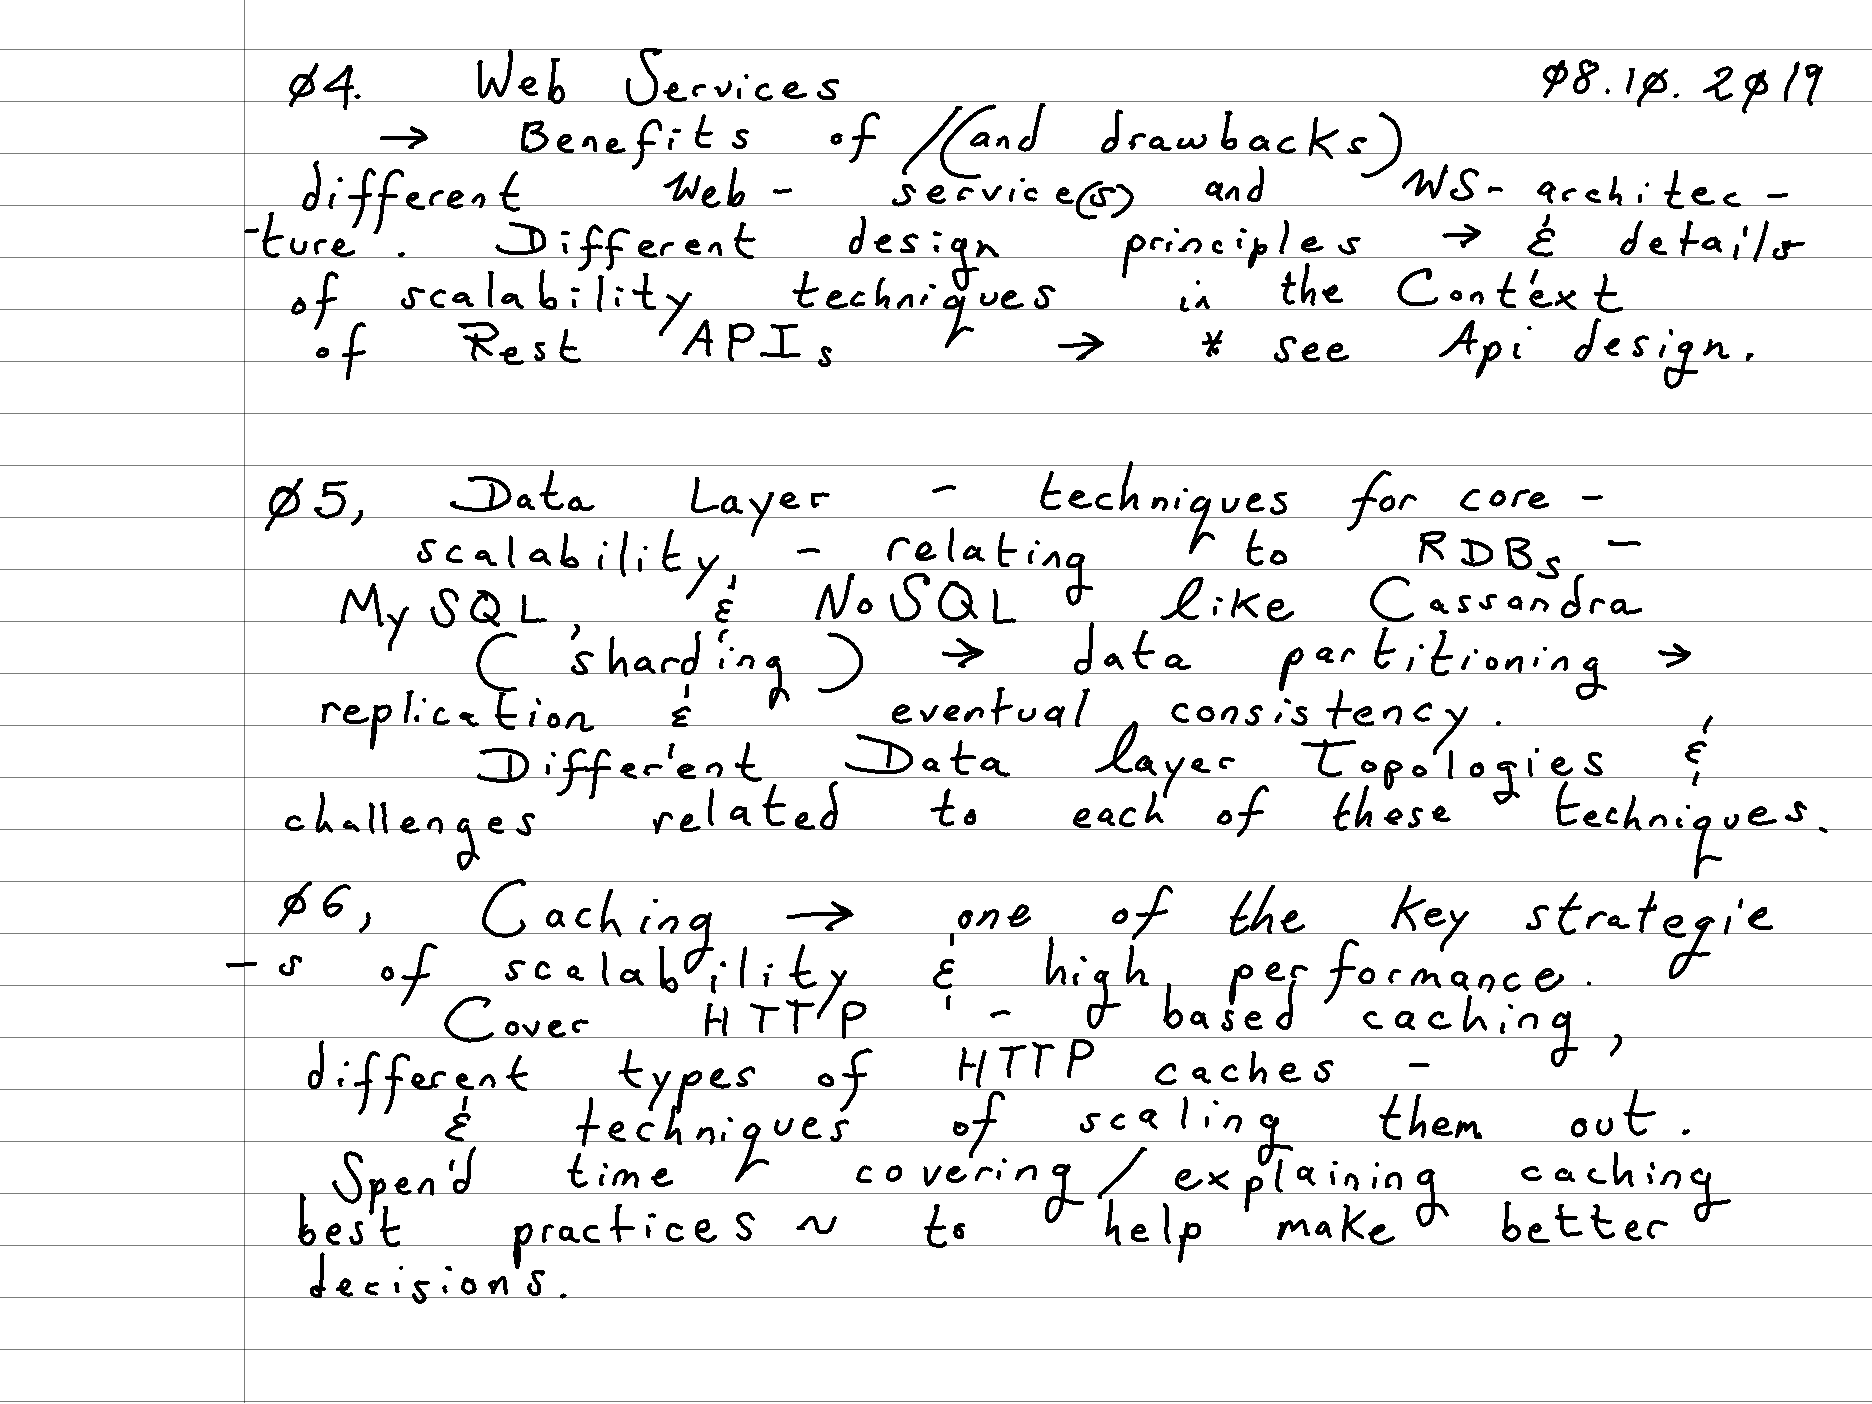 Ø4. Web Services Ø8.1Ø.2Ø19
→ Benefits of /(and drawbacks)
different Web - service(s) and WS- architec -
-ture . Different design principles → & details
of scalability techniques in the Context
of Rest APIs → * see Api design.
Ø5, Data Layer - techniques for core -
scalability, - relating to RDBs -
MySQL, & NoSQL like Cassandra
(sharding) → data partitioning →
replication & eventual consistency.
Different Data layer Topologies &
challenges related to each of these techniques.
Ø6, Caching → one of the key strategie
- s of scalability & high performance.
Cover HTTP - based caching,
different types of HTTP caches -
& techniques of scaling them out.
Spend time covering / explaining caching
best practices ~ to help make better
decisions.